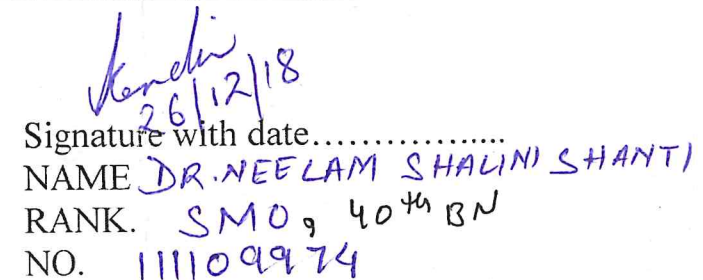 26/12/18
Signature with date.................
NAME DR. NEELAM SHALINI SHANTI
RANK. SMO, 40th BN
NO. 111109974